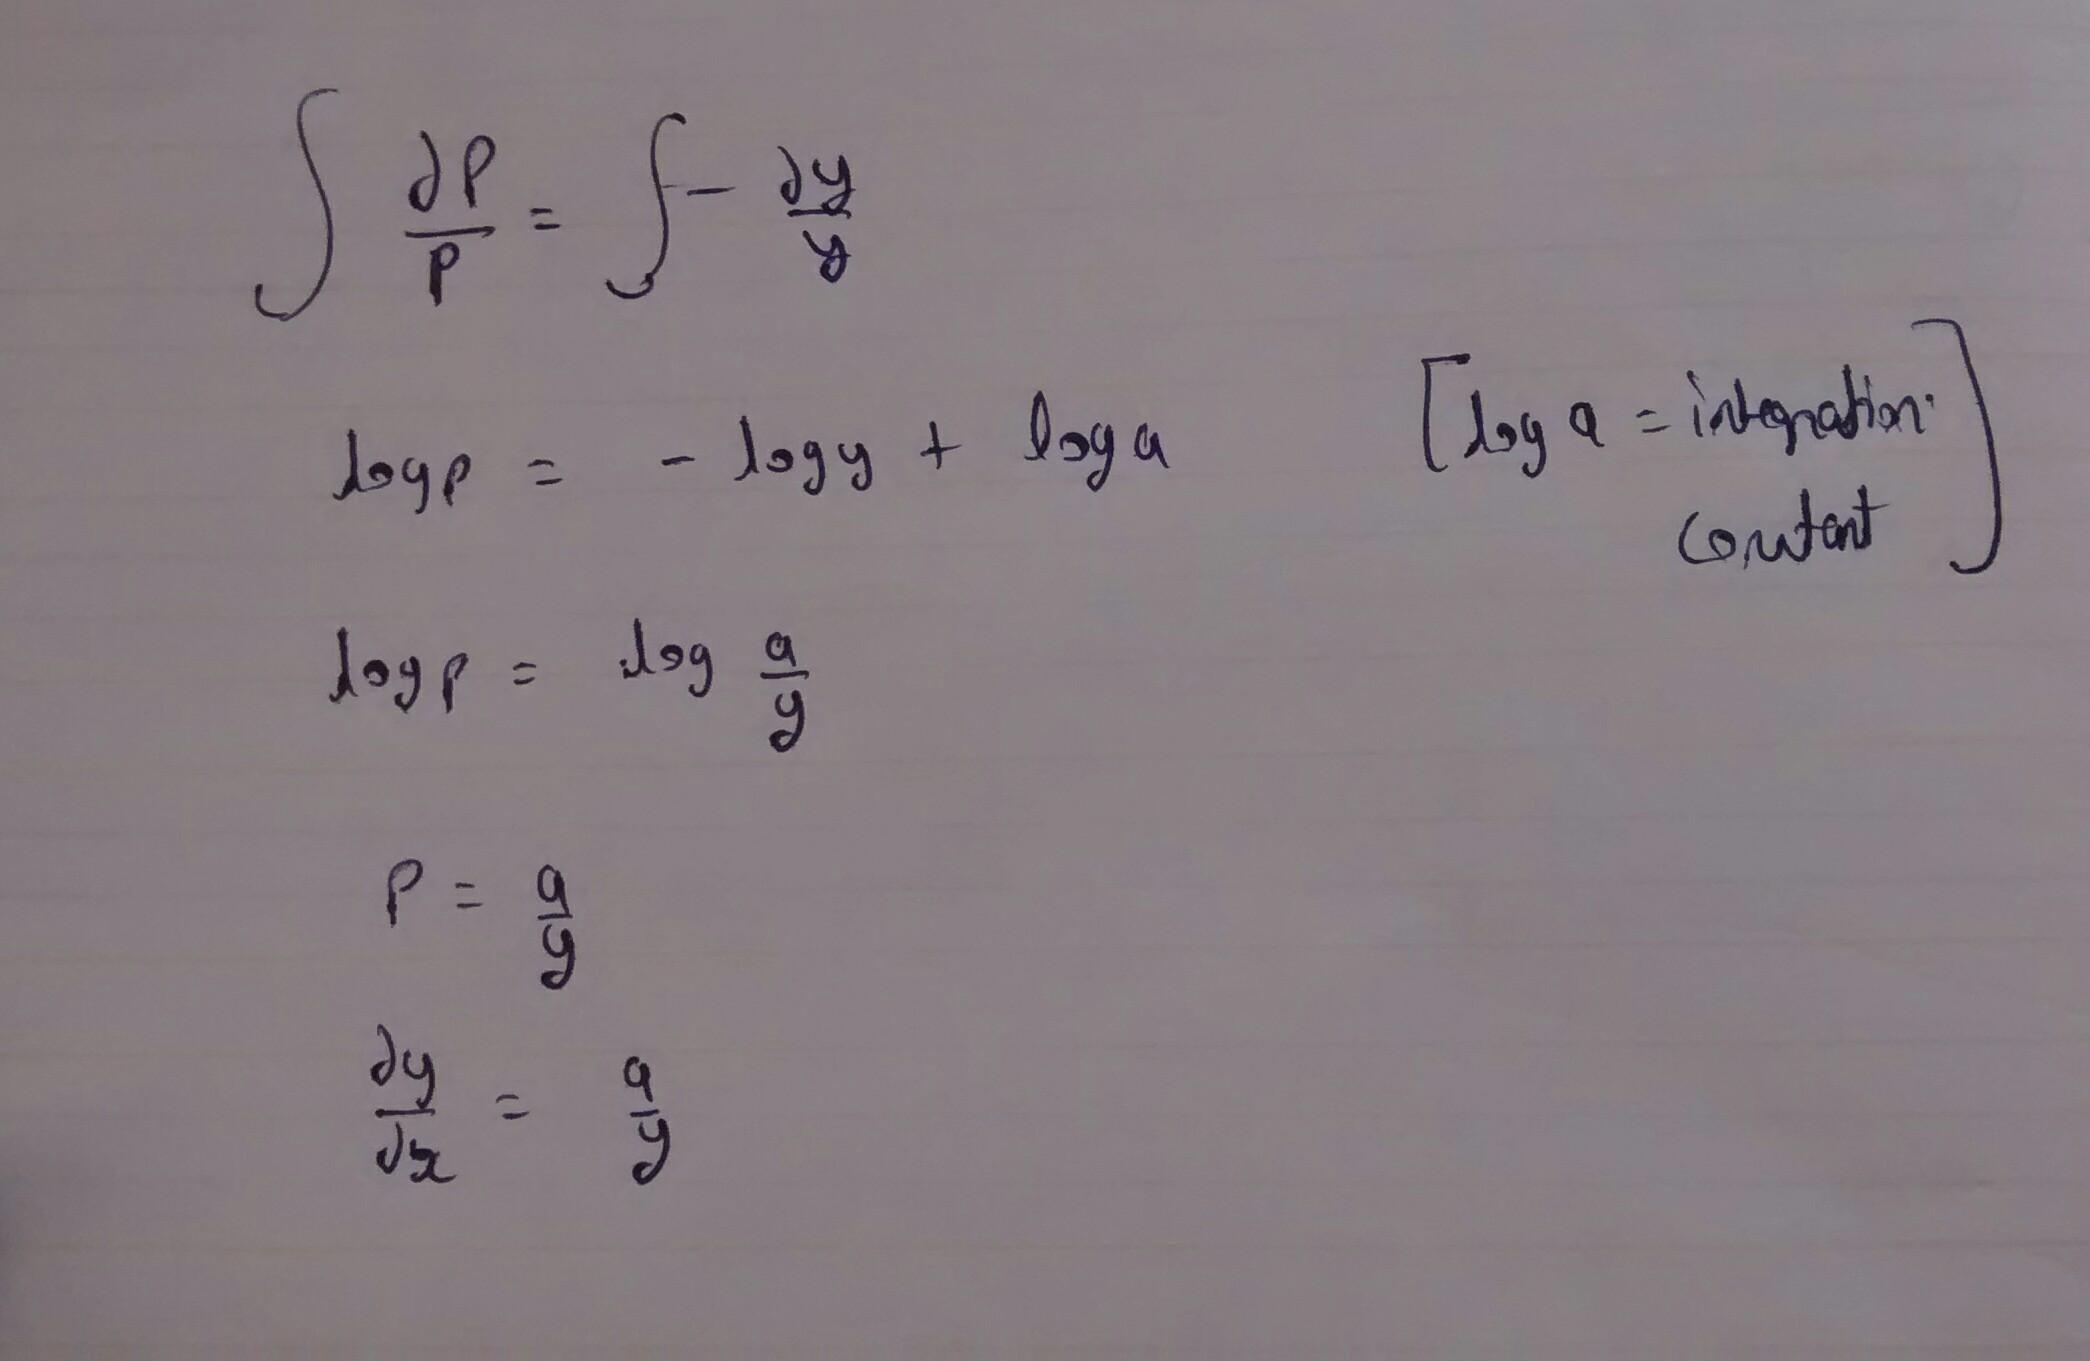 ∫ ∂P/P = ∫ - ∂y/y
log p = - log y + log a [log a = integration constant]
log p = log a/y
P = a/y
∂y/∂x = a/y